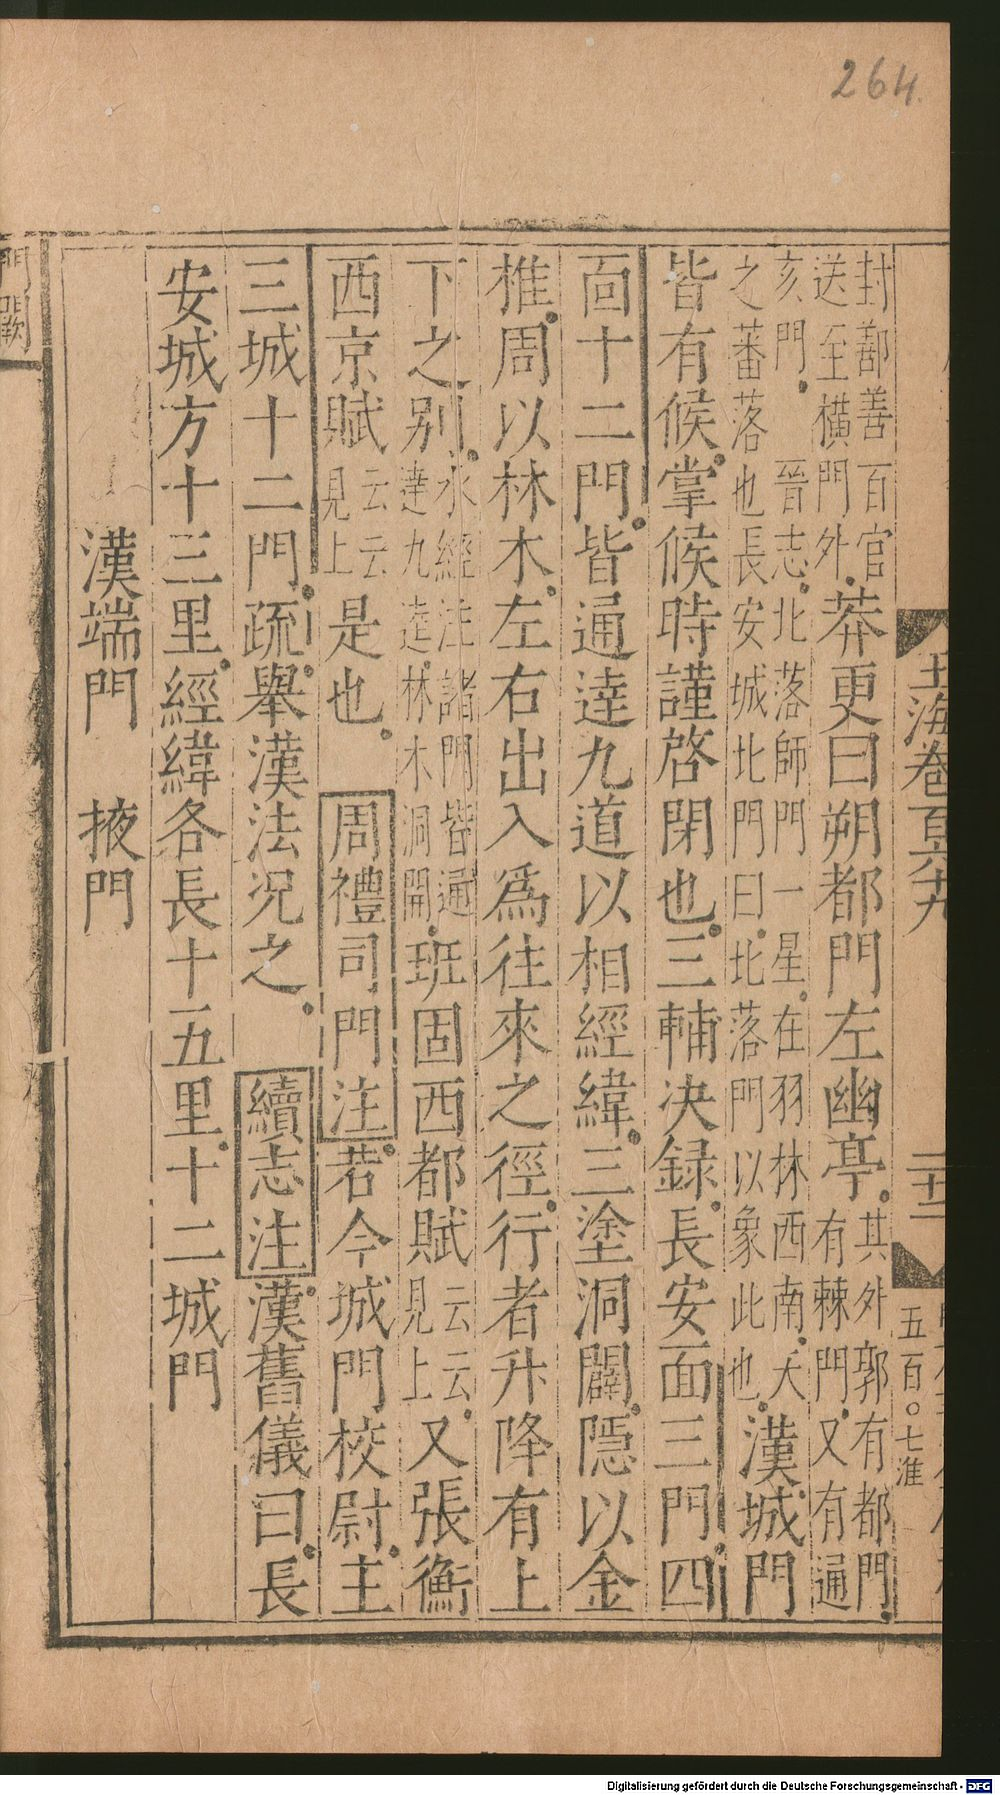 264.
玉海卷百六十九
二十二
五百〇七淮
封鄯善百官
送至橫門外莽更曰朔都門左幽亭其外郭有都門
有棘門又有通
亥門晉志北落師門一星在羽林西南天
之蕃落也長安城北門曰北落門以象此也漢城門
皆有候掌候時謹啓閉也三輔決録長安面三門四
面十二門皆通逵九道以相經緯三塗洞闢隱以金
椎周以林木左右出入爲往來之徑行者升降有上
下之别水經注諸門皆通
達九逵林木洞開班固西都賦云云
見上又張衡
西京賦云云
見上是也周禮司門注若今城門校尉主
三城十二門疏舉漢法况之續志注漢舊儀曰長
安城方十三里經緯各長十五里十二城門
漢端門　掖門
門闕
Digitalisierung gefördert durch die Deutsche Forschungsgemeinschaft - DFG